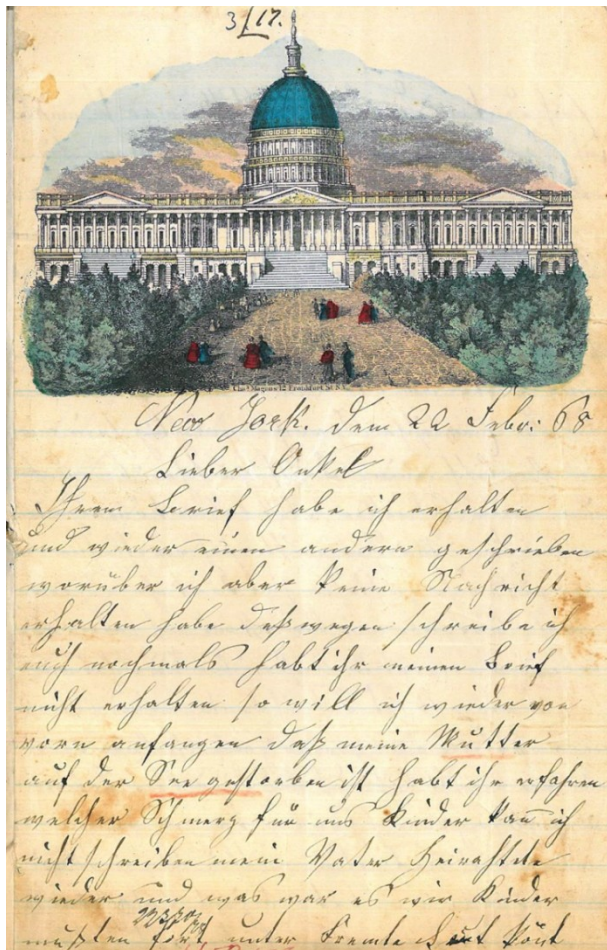 3/17.
New York. dem 22 Febr: 68
Lieber Onkel
Ihrem Brief habe ich erhalten
und wieder einen andern geschrieben
worüber ich aber keine Nachricht
erhalten habe deßwegen schreibe ich
euch nochmals habt ihr meinen Brief
nicht erhalten so will ich wieder von
vorn anfangen daß meine Mutter
auf der See gestorben ist habt ihr erfahren
welcher Schmerz für uns Kinder kan ich
nicht schreiben mein Vater Heirahtete
wieder und was war es wir Kinder
mußten fort unter Fremte